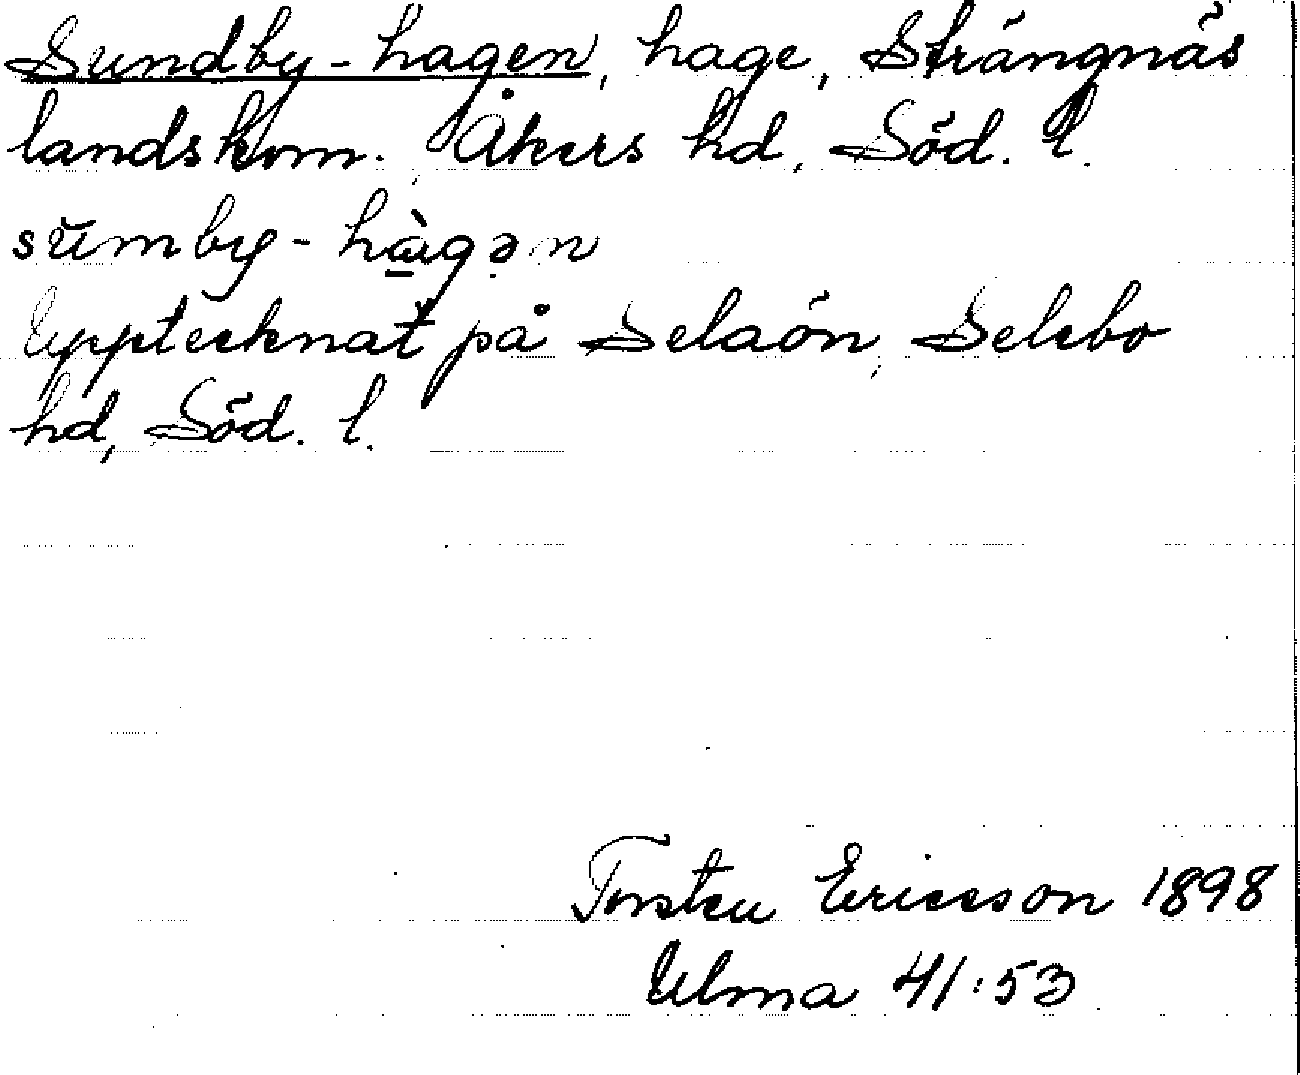 Sundby-hagen, hage, Strängnäs
landskom. Åkers hd, Söd. l.
sŭmby-hàgən
Upptecknat på Selaön, Selebo
hd, Söd. l.
Torsten Ericsson 1898
Ulma 41:53